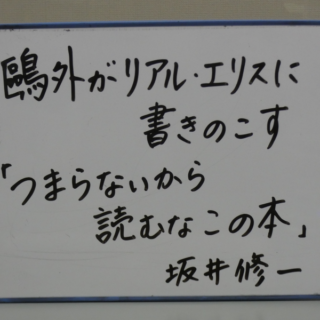 鷗外がリアル・エリスに
書きのこす
「つまらないから
読むなこの本」
坂井修一